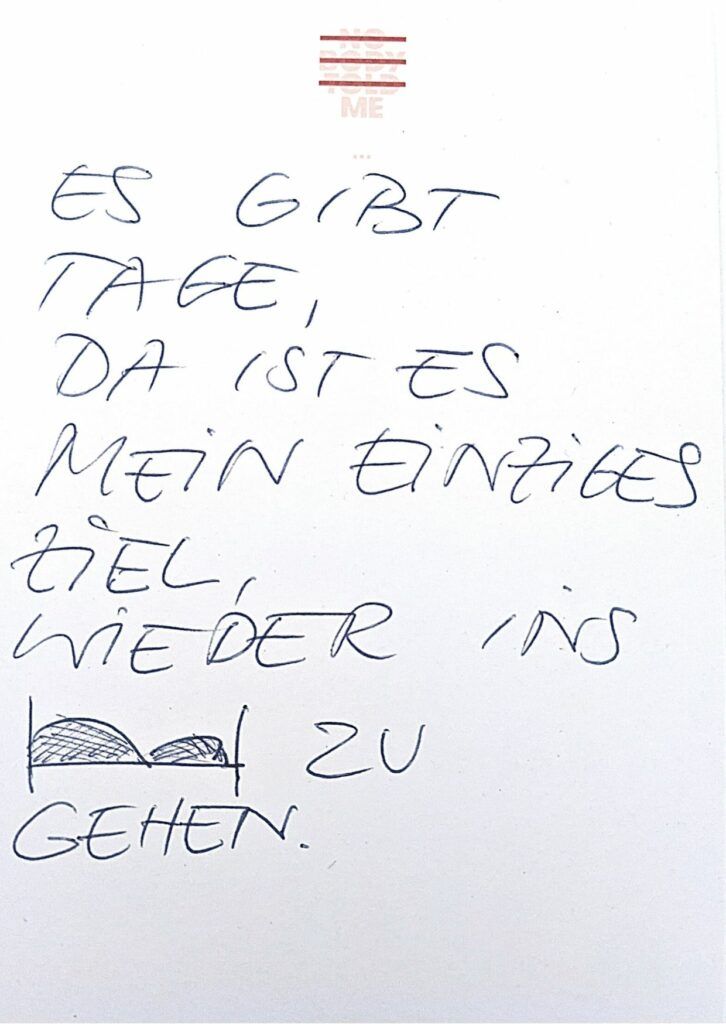 NO
BODY
TOLD
ME
...
ES GIBT
TAGE,
DA IST ES
MEIN EINZIGES
ZIEL,
WIEDER INS
ZU
GEHEN.